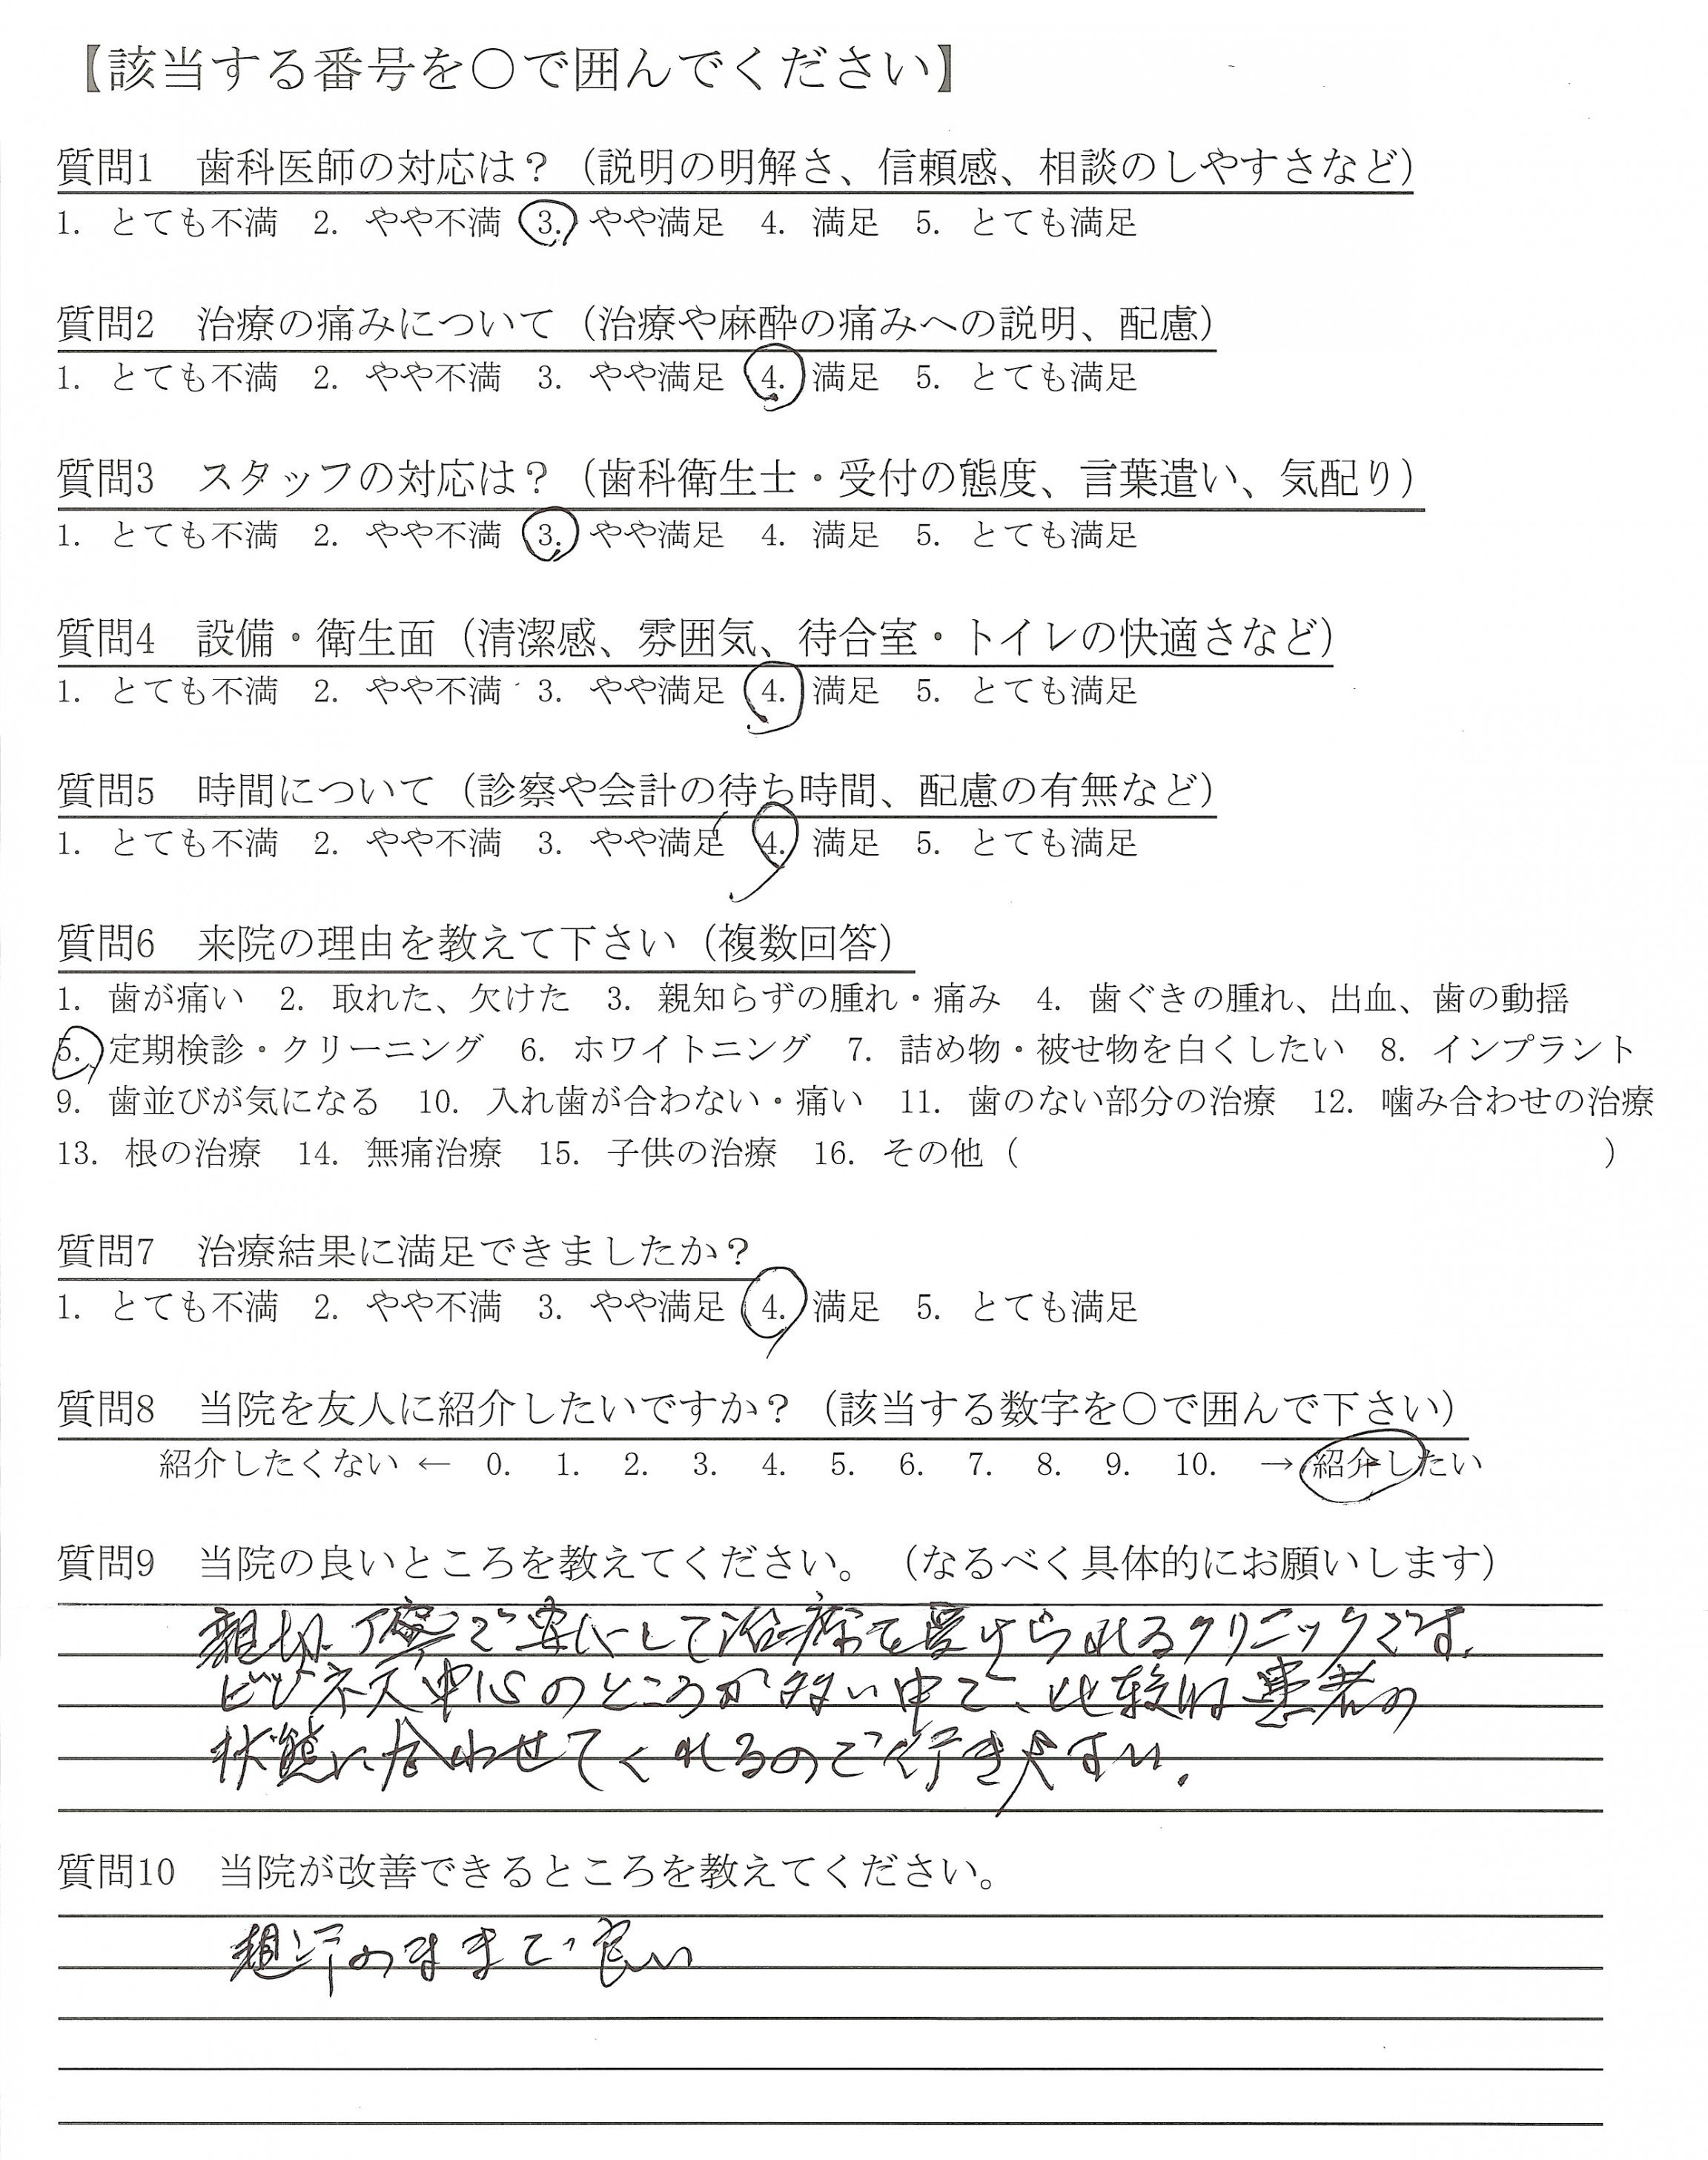 【該当する番号を○で囲んでください】
質問1　歯科医師の対応は？（説明の明解さ、信頼感、相談のしやすさなど）
1. とても不満　2. やや不満　3. やや満足　4. 満足　5. とても満足
質問2　治療の痛みについて（治療や麻酔の痛みへの説明、配慮）
1. とても不満　2. やや不満　3. やや満足　4. 満足　5. とても満足
質問3　スタッフの対応は？（歯科衛生士・受付の態度、言葉遣い、気配り）
1. とても不満　2. やや不満　3. やや満足　4. 満足　5. とても満足
質問4　設備・衛生面（清潔感、雰囲気、待合室・トイレの快適さなど）
1. とても不満　2. やや不満　3. やや満足　4. 満足　5. とても満足
質問5　時間について（診察や会計の待ち時間、配慮の有無など）
1. とても不満　2. やや不満　3. やや満足　4. 満足　5. とても満足
質問6　来院の理由を教えて下さい（複数回答）
1. 歯が痛い　2. 取れた、欠けた　3. 親知らずの腫れ・痛み　4. 歯ぐきの腫れ、出血、歯の動揺
5. 定期検診・クリーニング　6. ホワイトニング　7. 詰め物・被せ物を白くしたい　8. インプラント
9. 歯並びが気になる　10. 入れ歯が合わない・痛い　11. 歯のない部分の治療　12. 噛み合わせの治療
13. 根の治療　14. 無痛治療　15. 子供の治療　16. その他（　　　　　　　　　　　　　　　　　）
質問7　治療結果に満足できましたか？
1. とても不満　2. やや不満　3. やや満足　4. 満足　5. とても満足
質問8　当院を友人に紹介したいですか？（該当する数字を○で囲んで下さい）
紹介したくない ← 0. 1. 2. 3. 4. 5. 6. 7. 8. 9. 10. → 紹介したい
質問9　当院の良いところを教えてください。（なるべく具体的にお願いします）
親切、丁寧で安心して治療を受けられるクリニックです。
ビジネス中心のところが多い中で、比較的患者の
状態に合わせてくれるので行きやすい。
質問10　当院が改善できるところを教えてください。
のままで良い